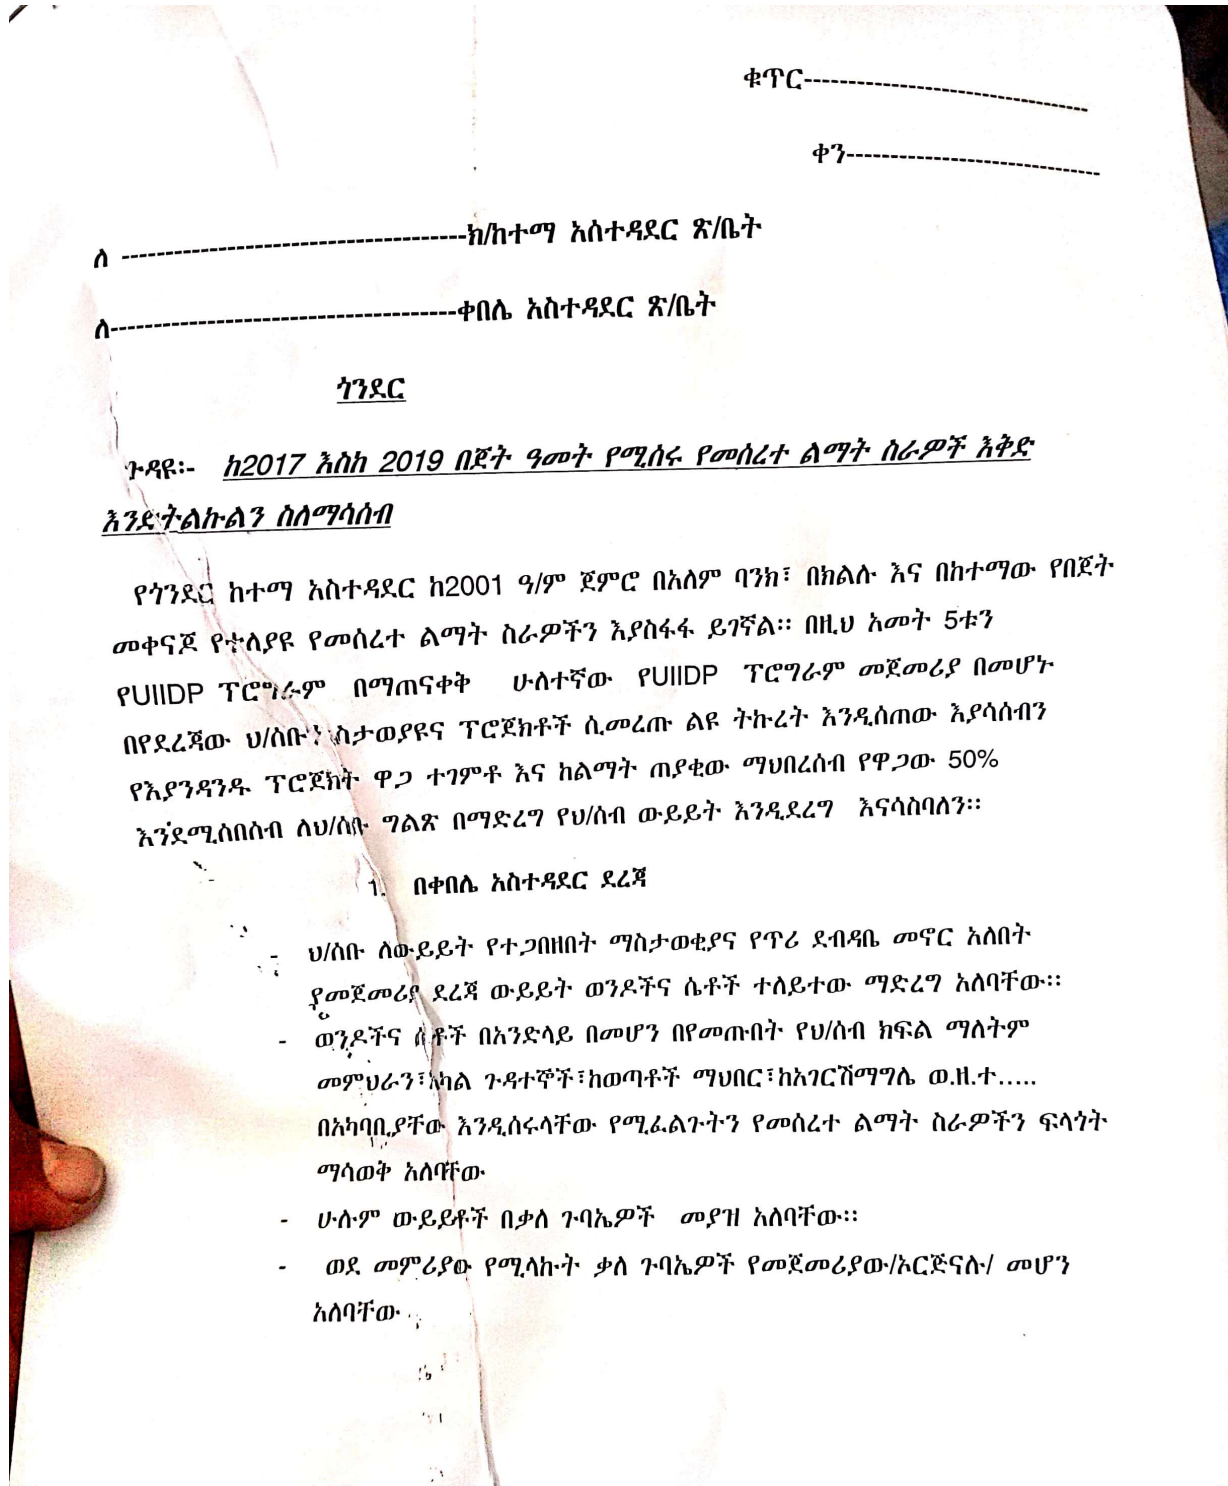 ቁጥር--------------------------------
ቀን----------------------------
ለ --------------------------------------ክ/ከተማ አስተዳደር ጽ/ቤት
ለ--------------------------------------ቀበሌ አስተዳደር ጽ/ቤት
ጎንደር
ጉዳዩ፡- ከ2017 እስከ 2019 በጀት ዓመት የሚሰሩ የመሰረተ ልማት ስራዎች እቅድ
እንድትልኩልን ስለማሳሰብ
የጎንደር ከተማ አስተዳደር ከ2001 ዓ/ም ጀምሮ በአለም ባንክ፣ በክልሉ እና በከተማው የበጀት
መቀናጆ የተለያዩ የመሰረተ ልማት ስራዎችን እያስፋፋ ይገኛል፡፡ በዚህ አመት 5ቱን
የUIIDP ፕሮግራም በማጠናቀቅ ሁለተኛው የUIIDP ፕሮግራም መጀመሪያ በመሆኑ
በየደረጃው ህ/ሰቡን ስታወያዩና ፕሮጀክቶች ሲመረጡ ልዩ ትኩረት እንዲሰጠው እያሳሰብን
የእያንዳንዱ ፕሮጀክት ዋጋ ተገምቶ እና ከልማት ጠያቂው ማህበረሰብ የዋጋው 50%
እንደሚሰበሰብ ለህ/ሰቡ ግልጽ በማድረግ የህ/ሰብ ውይይት እንዲደረግ እናሳስባለን፡፡
1. በቀበሌ አስተዳደር ደረጃ
- ህ/ሰቡ ለውይይት የተጋበዘበት ማስታወቂያና የጥሪ ደብዳቤ መኖር አለበት
የመጀመሪያ ደረጃ ውይይት ወንዶችና ሴቶች ተለይተው ማድረግ አለባቸው፡፡
- ወንዶችና ሴቶች በአንድላይ በመሆን በየመጡበት የህ/ሰብ ክፍል ማለትም
መምህራን፣አካል ጉዳተኞች፣ከወጣቶች ማህበር፣ከአገርሽማግሌ ወ.ዘ.ተ.....
በአካባቢያቸው እንዲሰሩላቸው የሚፈልጉትን የመሰረተ ልማት ስራዎችን ፍላጎት
ማሳወቅ አለባቸው
- ሁሉም ውይይቶች በቃለ ጉባኤዎች መያዝ አለባቸው፡፡
- ወደ መምሪያው የሚላኩት ቃለ ጉባኤዎች የመጀመሪያው/ኦርጅናሉ/ መሆን
አለባቸው